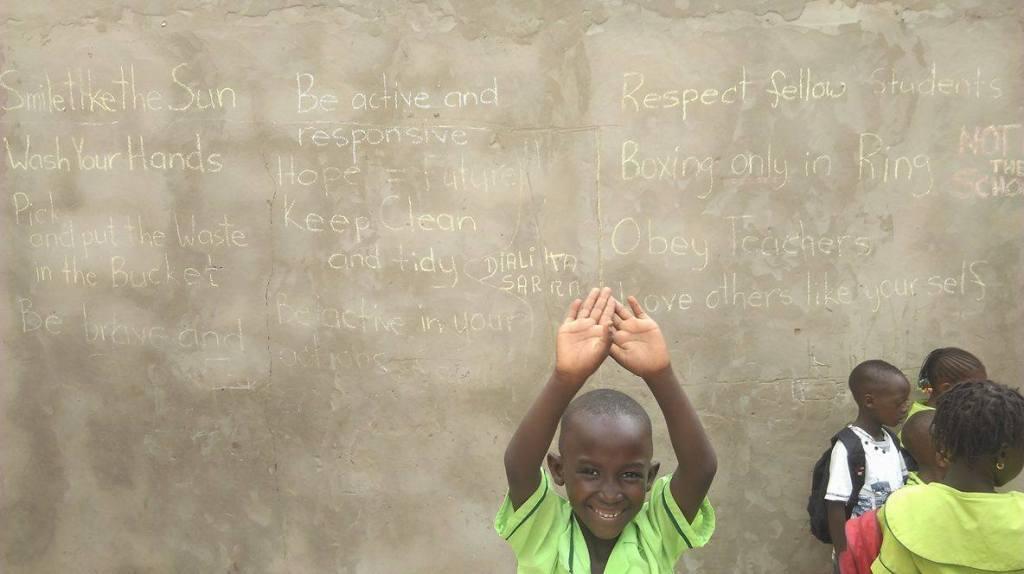 Smile like the Sun
Wash Your Hands
Pick
and put the Waste
in the Bucket
Be brave and
Be active and
responsive
Hope = Future
Keep Clean
and tidy
Be active in your
actions
DIALIKA
SARRA
Respect fellow Students
Boxing only in Ring
Obey Teachers
Love others like yourself
NOT
THE
SCHO